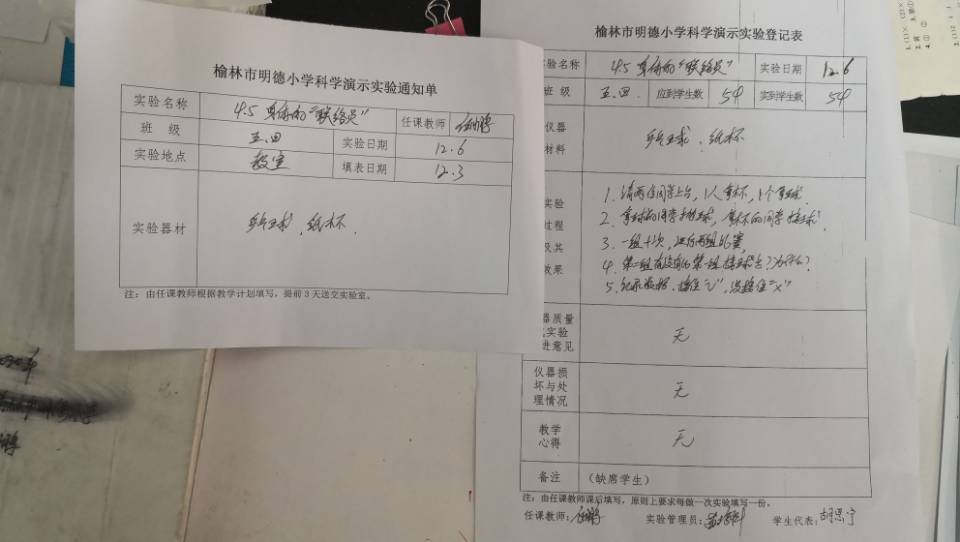 榆林市明德小学科学演示实验通知单
实验名称 4.5 身体的“联络员” 任课教师
班 级 五.四 实验日期 12.6
实验地点 教室 填表日期 12.3
实验器材 乒乓球、纸杯
注：由任课教师根据教学计划填写，提前3天送交实验室。
榆林市明德小学科学演示实验登记表
验名称 4.5 身体的“联络员” 实验日期 12.6
班 级 五.四. 应到学生数 54 实到学生数 54
仪器
材料
乒乓球、纸杯
实验
过程
及其
效果
1. 请两位同学上台，1人拿杯，1个拿球.
2. 拿球的同学抛球，拿杯的同学接球.
3. 一组十次，进行两组比赛，
4. 第二组有没有比第一组接球多？为什么？
5. 记录数据，接住“√”，没接住“×”
器质量
实验
进意见
无
仪器损
坏与处
理情况
无
教学
心得
无
备注 （缺席学生）
注：由任课教师课后填写，原则上要求每做一次实验填写一份。
任课教师： 实验管理员： 学生代表：胡思宁